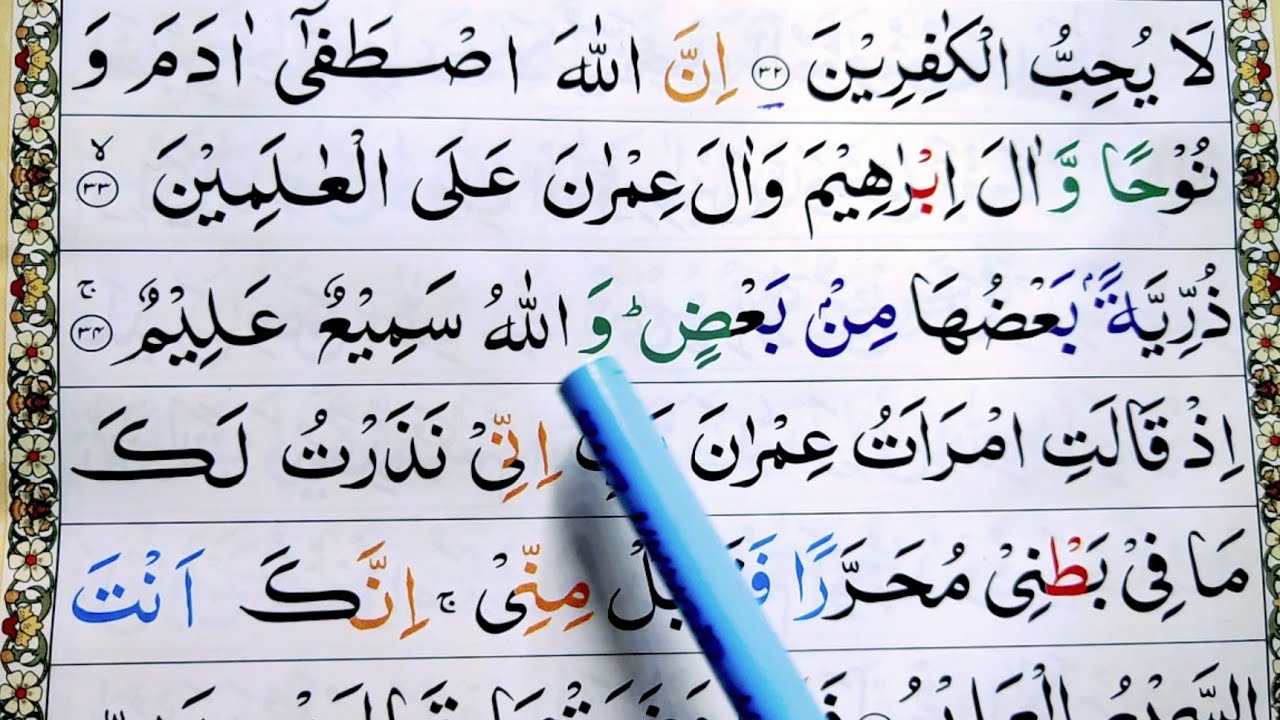 لَا يُحِبُّ الْكٰفِرِيْنَ ﴿٣٢﴾ اِنَّ اللّٰهَ اصْطَفٰۤى اٰدَمَ وَ
نُوْحًا وَّ اٰلَ اِبْرٰهِيْمَ وَاٰلَ عِمْرٰنَ عَلَى الْعٰلَمِيْنَ ﴿٣٣﴾ ۙ
ذُرِّيَّةًۢ بَعْضُهَا مِنْۢ بَعْضٍ ؕ وَ اللّٰهُ سَمِيْعٌ عَلِيْمٌ ﴿٣٤﴾ ۚ
اِذْ قَالَتِ امْرَاَتُ عِمْرٰنَ اِنِّىْ نَذَرْتُ لَكَ
مَا فِىْ بَطْنِىْ مُحَرَّرًا مِنِّىْ ۚ اِنَّكَ اَنْتَ